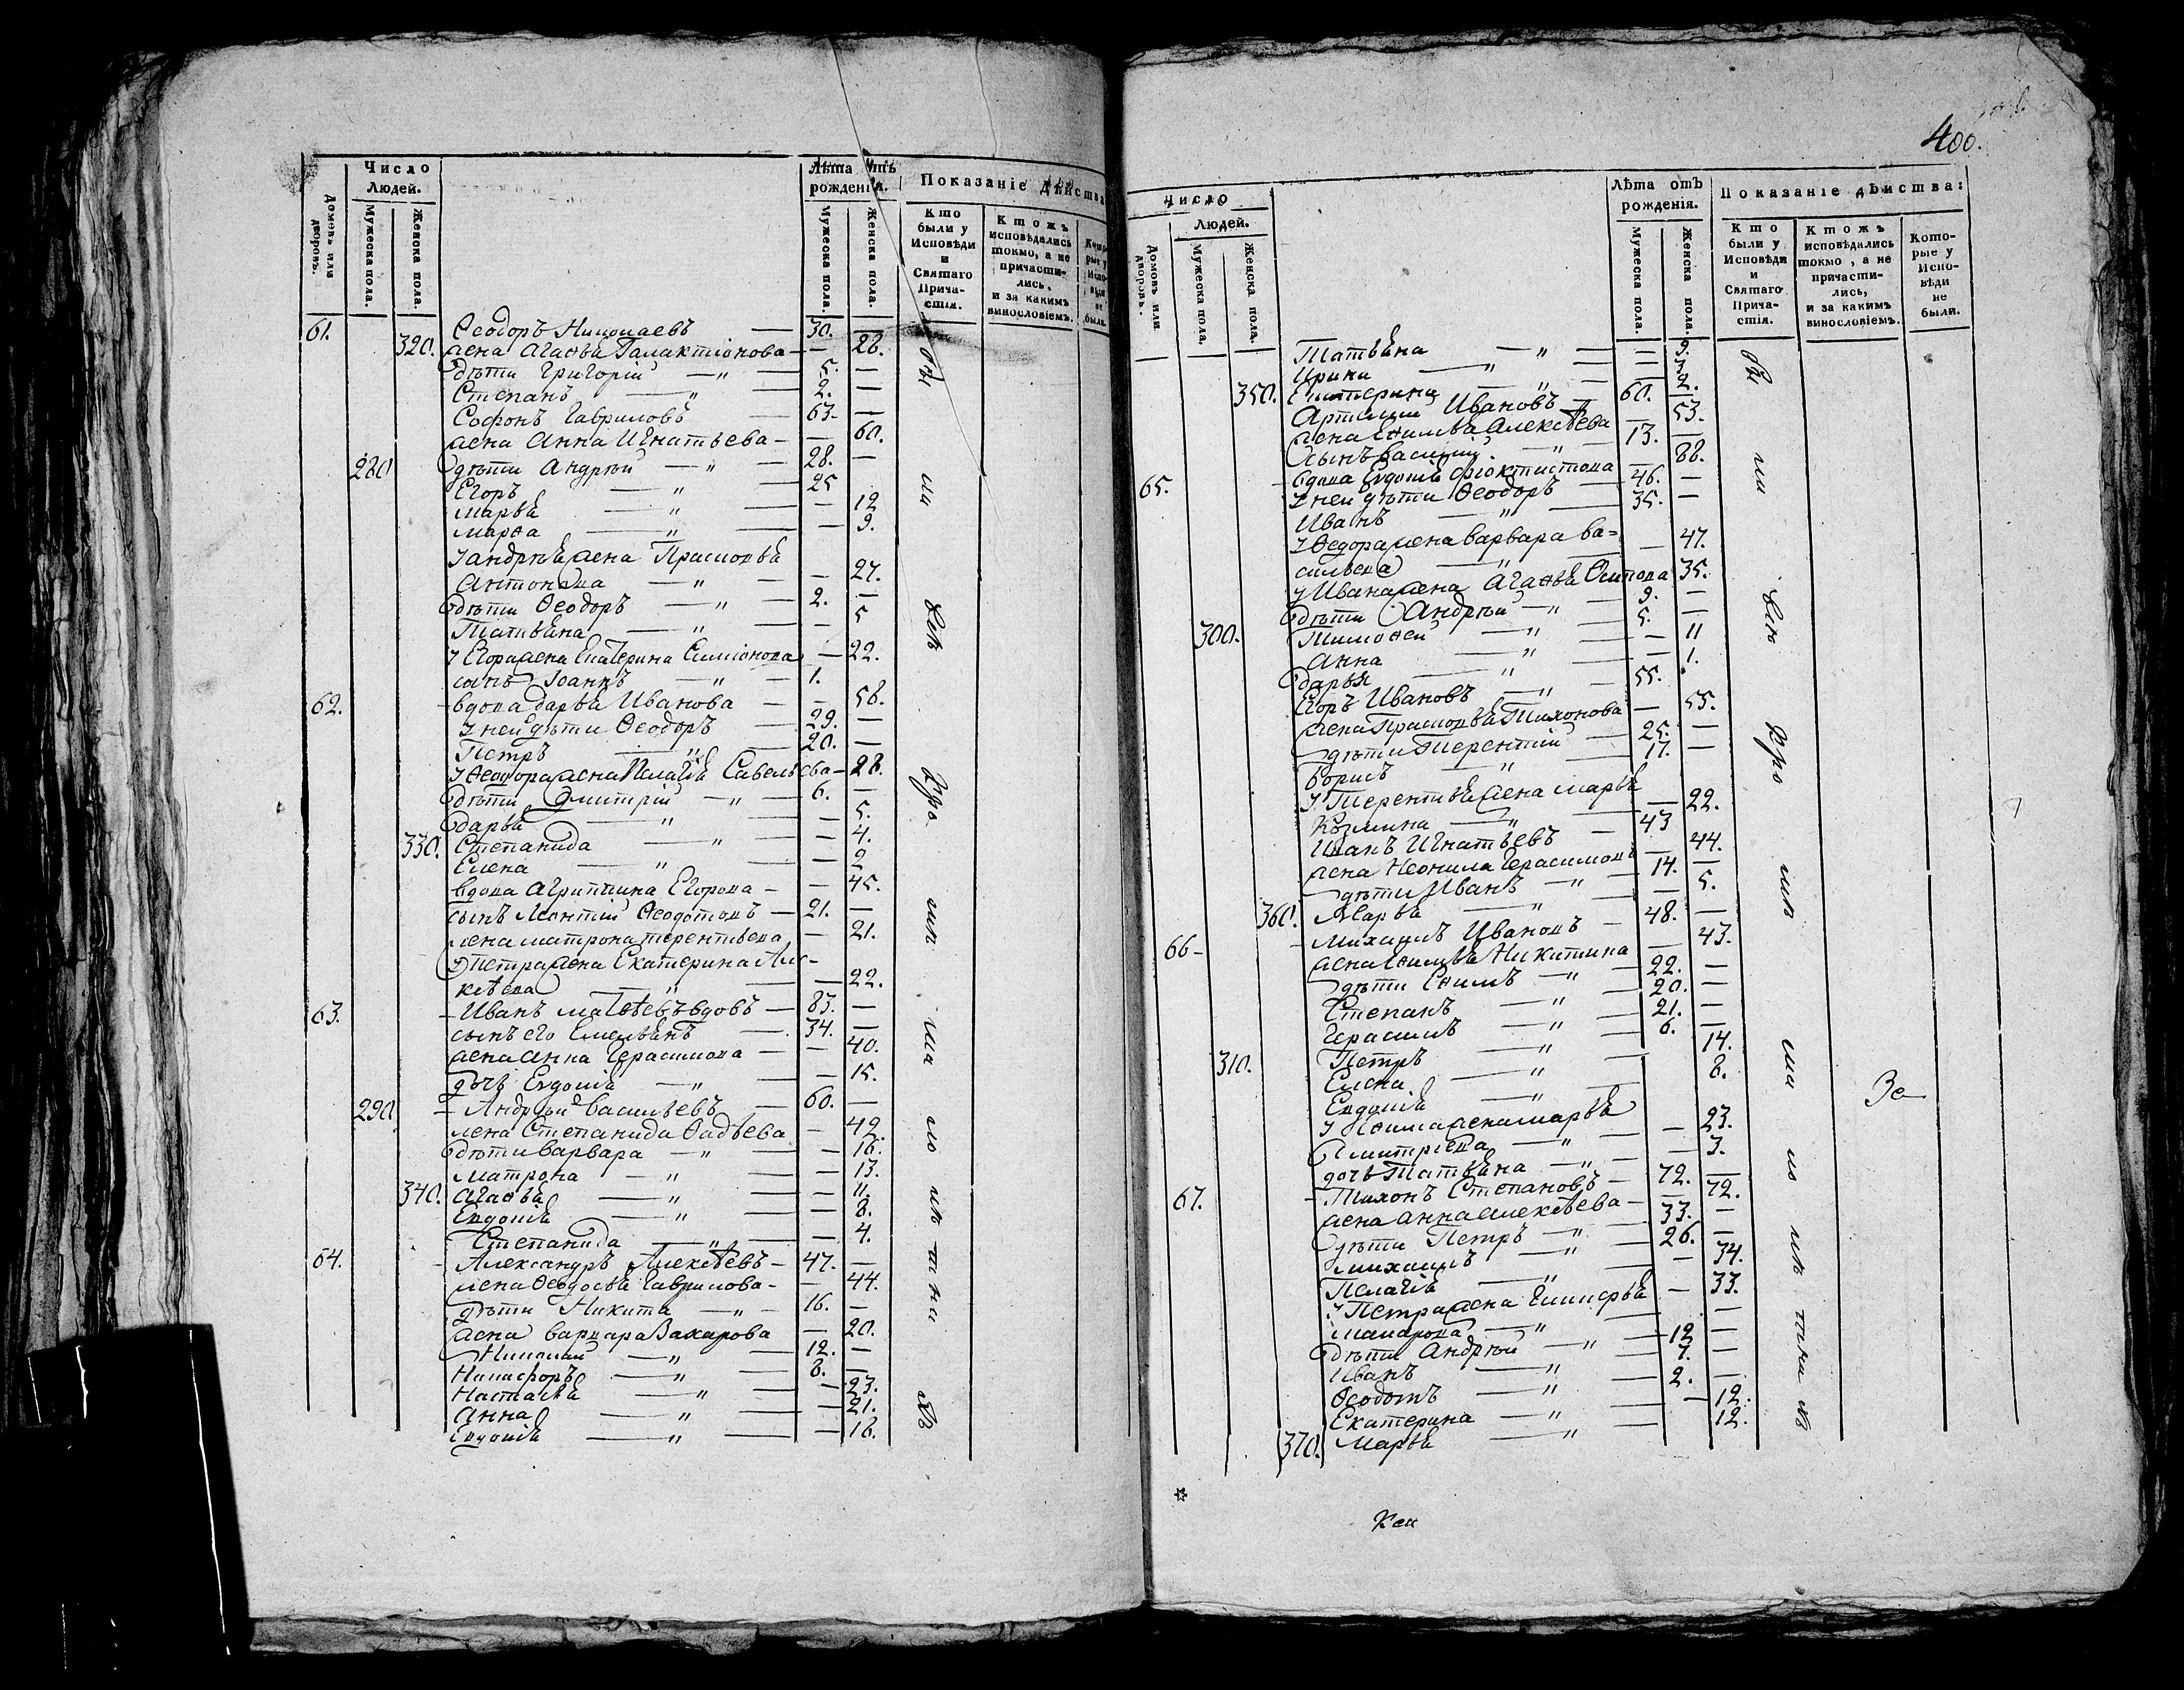 Число
Людей.
Домовъ или дворовъ.
Мужеска пола.
Женска пола.
Лѣта отъ
рожденія.
Мужеска пола.
Женска пола.
Показаніе дѣйства
Кто
были у
Исповѣди
и
Святаго
Прича-
стія.
Ктожъ
исповѣдались
токмо, а не
причасти-
лись,
и за какимъ
винословіемъ.
61. Ѳеодоръ Николаевъ — 30. —
320. жена Агаѳья Галактіонова — — 28.
дѣти Григорій — „ — 5. —
Степанъ — „ — 2. —
Софонъ Гавриловъ — 63. —
жена Анна Игнатьева — — 60.
280 дѣти Андрей — „ — 28. —
Егоръ — „ — 25
Марья — „ — — 12
Марѳа — „ — — 9.
У Андрея жена Прасковья
Антонова — „ — — 27.
дѣти Ѳеодоръ — „ — 2. —
Татьяна — „ — — 5
У Егора жена Екатерина Симіонова — 22.
сынъ Іоаннъ — „ — 1.
62. вдова Дарья Иванова — — 58.
У ней дѣти Ѳеодоръ — 29. —
Петръ — „ — 20. —
У Ѳеодора жена Пелагія Савельева — 28.
дѣти Дмитрій — „ — 6. —
Дарья — „ — — 5.
330. Степанида — „ — — 4.
Елена — „ — — 2
вдова Агриппина Егорова — — 45.
сынъ Леонтій Ѳеодотовъ — 21. —
жена Матрона Терентьева — 21.
У Петра жена Екатерина Але-
ксѣева — „ — — 22.
63. Иванъ Матвѣевъ вдовъ — 83. —
сынъ его Емельянъ — 34. —
жена Анна Герасимова — — 40.
дочь Евдокія — „ — — 15.
290 Андрей Васильевъ — 60. —
жена Степанида Фадѣева — 42.
дѣти Варвара — „ — — 16.
Матрона — „ — — 13.
340. Агаѳья — „ — — 11.
Евдокія — „ — — 8.
Степанида — „ — — 4.
64. Александръ Алексѣевъ — 47. —
жена Ѳеодосья Гаврилова — — 44.
дѣти Никита — „ — 16. —
жена Варвара Захарова — 20.
Николай — „ — 12. —
Никифоръ — „ — 8. —
Настасья — „ — — 23.
Анна — „ — — 21.
Евдокія — „ — — 16.
400.
Число
Людей.
Домовъ или дворовъ.
Мужеска пола.
Женска пола.
Лѣта отъ
рожденія.
Мужеска пола.
Женска пола.
Показаніе дѣйства:
Кто
были у
Исповѣди
и
Святаго
Прича-
стія.
Ктожъ
исповѣдались
токмо, а не
причасти-
лись,
и за какимъ
винословіемъ.
Кото-
рые у
Испо-
вѣди
не
были.
Татьяна — „ — — 9.
Ирина — „ — — 3.
350. Екатерина — „ — — 2.
Ивановъ — 60. —
жена Алексѣева — 53.
сынъ Василій — „ — 13. —
вдова Евдокія Феоктистова — 88.
65. У ней дѣти Ѳеодоръ — 46. —
Иванъ — „ — 35. —
У Ѳедора жена Варвара Ва-
сильева — „ — — 47.
У Ивана жена Агаѳья Осипова 35.
дѣти Андрей — „ — 9. —
300. Тимоѳей — „ — 5. —
Анна — „ — — 11
Дарья — „ — — 1.
Егоръ Ивановъ — „ — 55.
жена Прасковья Тихонова — 55.
дѣти Терентій — 25. —
Борисъ — „ — 17. —
У Терентья жена Марья
Козмина — „ — — 22.
Иванъ Игнатьевъ — 43
жена Неонила Герасимова — 44.
дѣти Иванъ — „ — 14. —
360. Марья — „ — — 5.
66 - Михаилъ Ивановъ — 48. —
жена Никитина — 43.
дѣти — „ — 22. —
Степанъ — „ — 20. —
Герасимъ — „ — 21. —
310. Петръ — „ — 6. —
Елена — „ — 14.
Евдокія — „ — 8.
У жена Марья
Дмитріева — „ — — 23.
дочь Татьяна — „ — — 3.
67. Тихонъ Степановъ — 72. —
жена Анна Алексѣева — — 72.
дѣти Петръ — „ — 33. —
Михаилъ — „ — 26. —
Пелагія — „ — — 34.
У Петра жена Гликерья — 33.
Макарова — „ — —
дѣти Андрей — „ — 12 —
Иванъ — „ — 7. —
Ѳеодотъ — „ — 2. —
Екатерина — „ — — 12.
370. Марья — „ — 12.